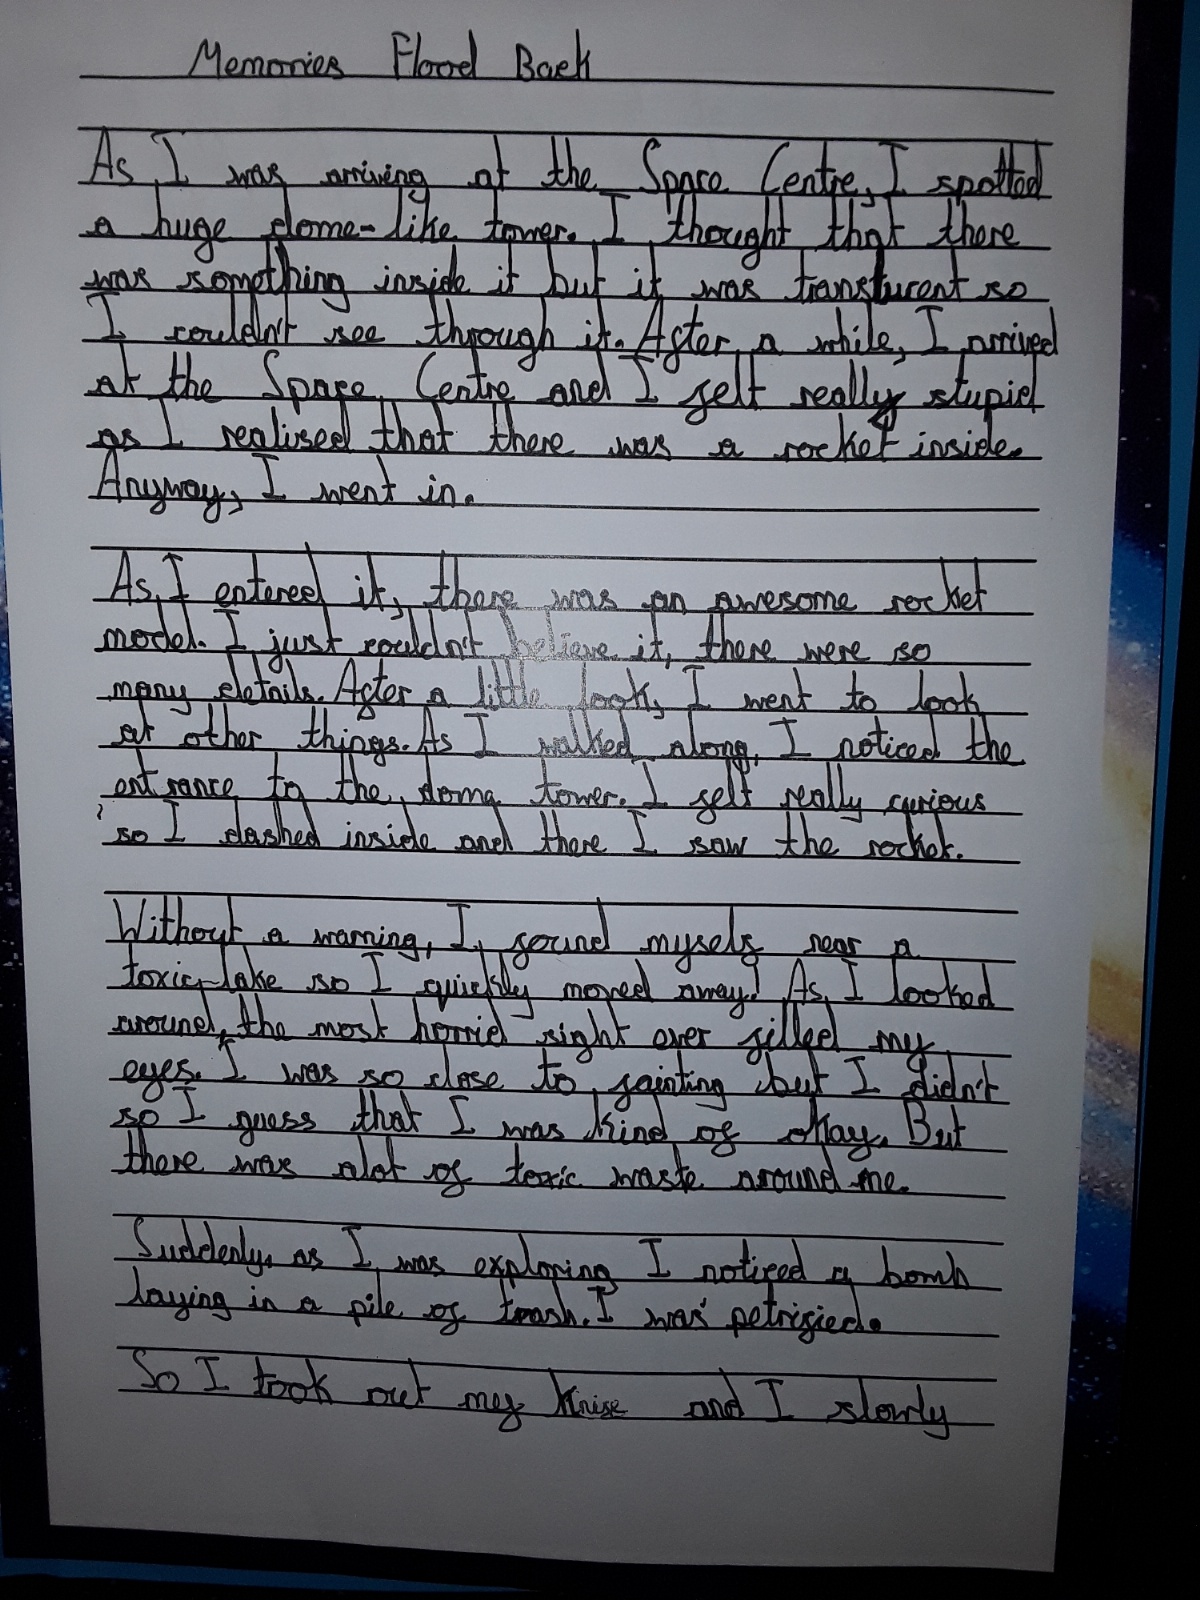 Memories Flood Back
As I was arriving at the Space Centre, I spotted
a huge dome-like tower. I thought that there
was something inside it but it was translucent so
I couldn't see through it. After a while, I arrived
at the Space Centre and I felt really stupid
as I realised that there was a rocket inside.
Anyway, I went in.
As I entered it, there was an awesome rocket
model. I just couldn't believe it, there were so
many details. After a little look, I went to look
at other things. As I walked along, I noticed the
entrance to the dome tower. I felt really curious
so I dashed inside and there I saw the rocket.
Without a warning, I found myself near a
toxic-lake so I quickly moved away! As I looked
around, the most horrid sight over filled my
eyes. I was so close to fainting but I didn't
so I guess that I was kind of okay. But
there was alot of toxic waste around me.
Suddenly, as I was exploring I noticed a bomb
laying in a pile of trash. I was petrified.
So I took out my knife and I slowly